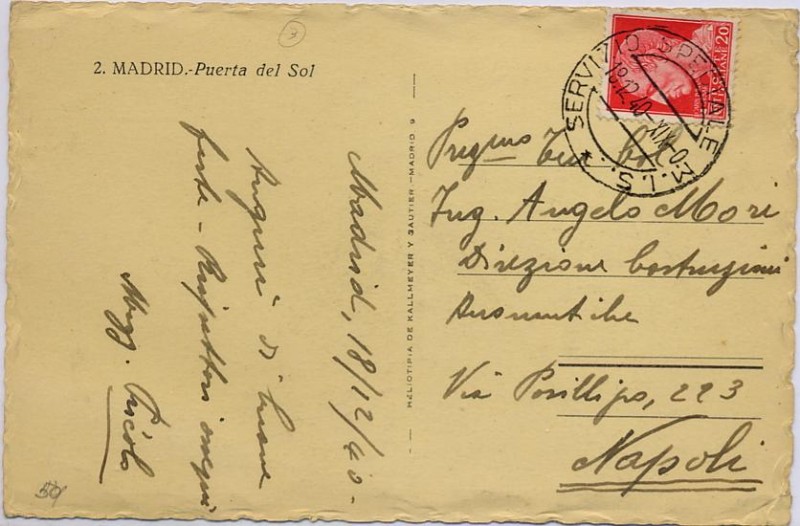 3
2. MADRID.-Puerta del Sol
Madrid, 18/12/40-
Auguri di buone
feste - Rispettosi ossequi
Magg. Piccolo
50
HELIOTIPIA DE KALLMEYER Y GAUTIER - MADRID
SERVIZIO SPECIALE M.I.S. *
18.12.40-XIX-0
20
Pregmo Ten Col
Ing. Angelo Mori
Direzione Costruzioni
Aeronautiche
Via Posillipo, 223
Napoli